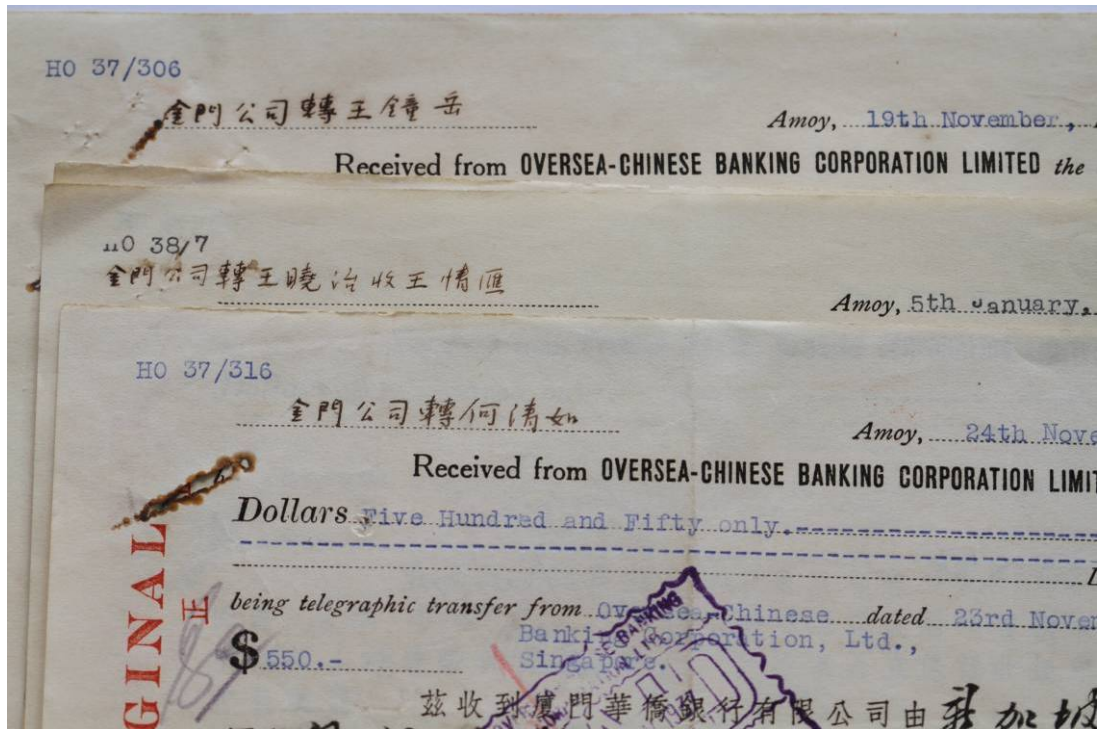 HO 37/306
金門公司轉王鐘岳
Amoy, 19th November,
Received from OVERSEA-CHINESE BANKING CORPORATION LIMITED the
HO 38/7
金門公司轉王曉治收王情匯
Amoy, 5th January,
HO 37/316
金門公司轉何清如
Amoy, 24th Nove
Received from OVERSEA-CHINESE BANKING CORPORATION LIMIT
Dollars Five Hundred and Fifty only.
being telegraphic transfer from Oversea-Chinese dated 23rd Novem
Banking Corporation, Ltd.,
$ 550.-
Singapore.
茲收到廈門華僑銀行有限公司由新加坡
GINAL
正